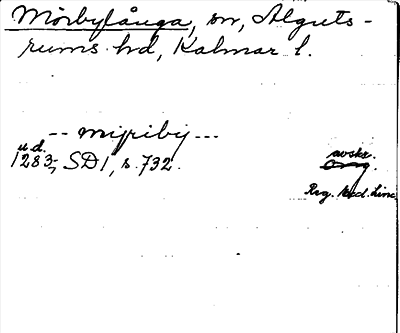 Mörbylånga, sn, Alguts-
rums hd, Kalmar l.
-- mijribij ---
u.d.
1283, SD 1, s. 732.
avskr.
Orig.
Reg. Ked. Linc.